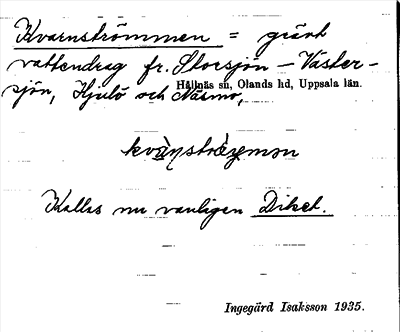 Kvarnströmmen = grävt
vattendrag fr. Storsjön - Väster-
sjön, Hjulö och Näsmo,
Hållnäs sn, Olands hd, Uppsala län.
Kallas nu vanligen Diket.
Ingegärd Isaksson 1935.